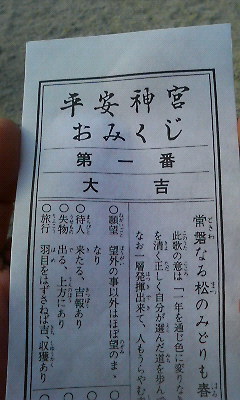 平安神宮
おみくじ
第一番
大吉
常磐なる松のみどりも春
此歌の意は「一年を通じ色に変りな
を清く正しく自分が選んだ道を歩んで
なお一層発揮出来て、人もうらやむ
○願望 望外の事以外はほぼ望のま、
なり
○待人 来たる、吉報あり
○失物 出る、上方にあり
○旅行 羽目をはずさねば吉、収穫あり